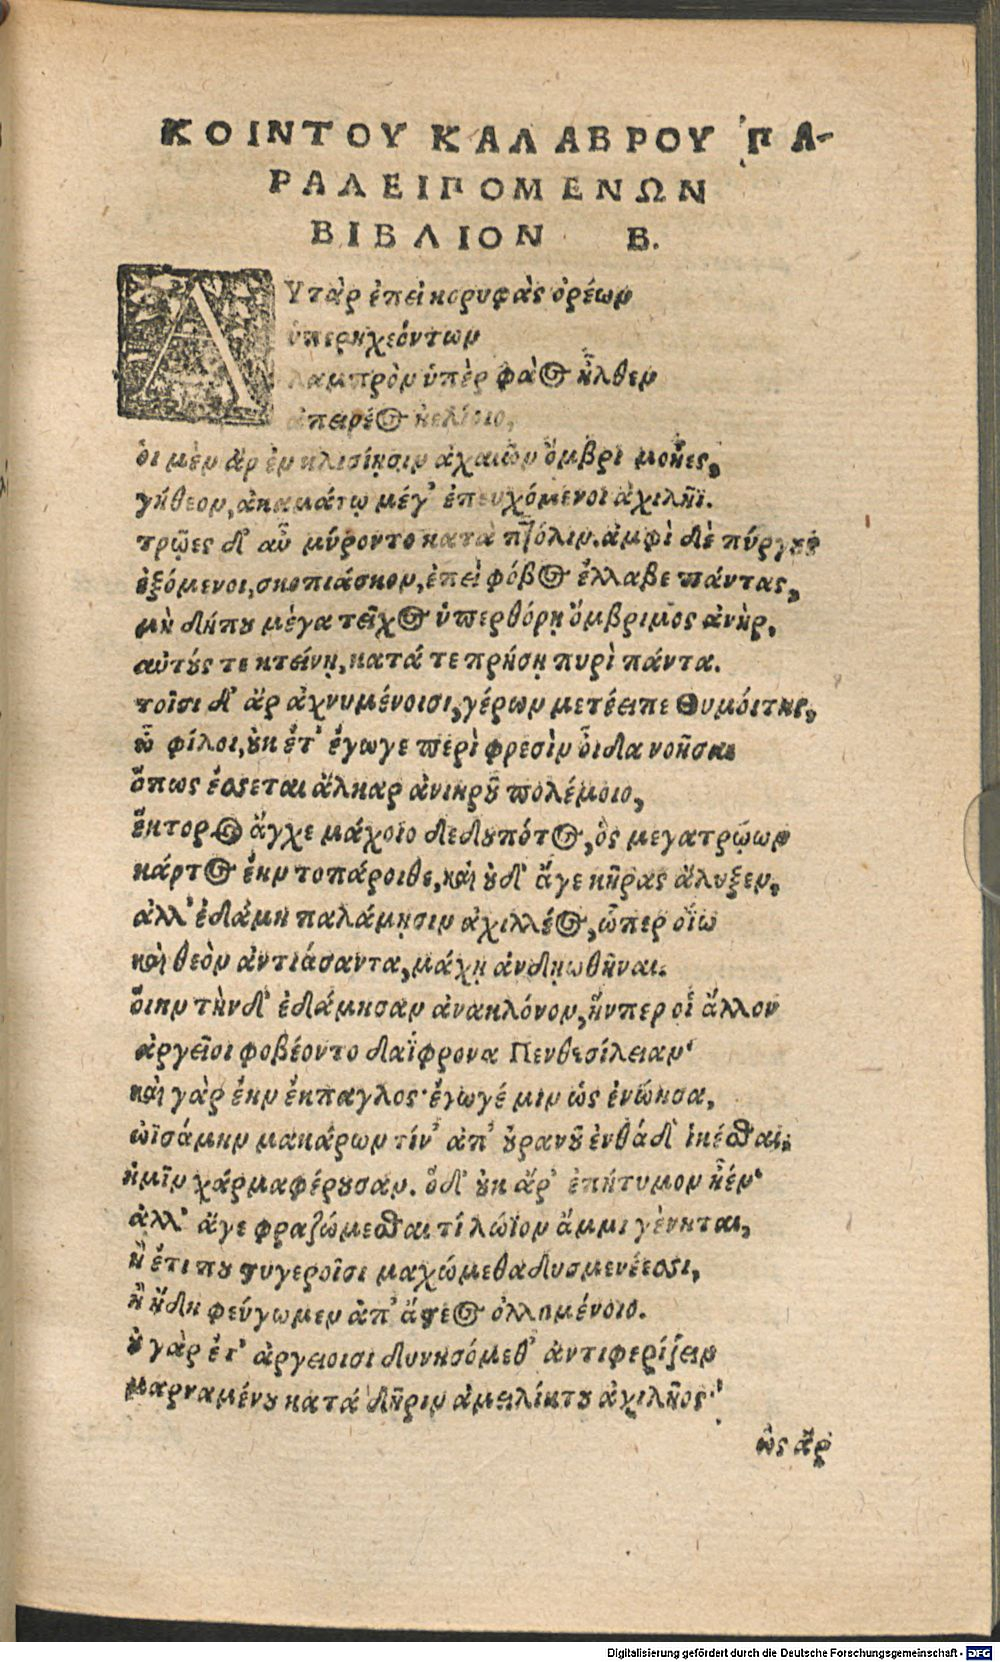 ΚΟΙΝΤΟΥ ΚΑΛΑΒΡΟΥ ΠΑ-
ΡΑΛΕΙΠΟΜΕΝΩΝ
ΒΙΒΛΙΟΝ Β.
ΑΥτὰρ ἐπεὶ κορυφὰς ὀρέων
ὑπερηχεόντων
λαμπρὸν ὑπὲρ φάος ἦλθεν
ἀπειρέος ἠελίοιο,
ὁι μὲν ἂρ ἐν κλισίῃσιν ἀχαιῶν ὄμβριμοι ἧες,
γήθεον, ἀκαμάτῳ μέγ' ἐπευχόμενοι ἀχιλῆϊ.
τρῶες δ' αὖ μύροντο κατὰ πτόλιν. ἀμφὶ δὲ πύργους
ἑζόμενοι, σκοπιάσκον, ἐπεὶ φόβος ἔλλαβε πάντας,
μὴ δήπου μέγα τεῖχος ὑπερθόρῃ ὄμβριμος ἀνὴρ,
αὐτούς τε κτείνῃ, κατά τε πρήσῃ πυρὶ πάντα.
τοῖσι δ' ἂρ ἀχνυμένοισι, γέρων μετέειπε Θυμόιτης,
ὦ φίλοι, οὐκ ἔτ' ἔγωγε περὶ φρεσὶν οἶδα νοῆσαι
ὅπως ἔσσεται ἄλκαρ ἀνιηροῦ πολέμοιο,
ἕκτορος ἄγχε μάχοιο δεδουπότος, ὃς μεγατρώων
κάρτος ἔην τοπάροιθε, καὶ οὐδ' ἅγε κῆρας ἄλυξεν,
ἀλλ' ἐδάμη παλάμῃσιν ἀχιλλέος, ὧπερ οἴω
καὶ θεὸν ἀντιάσαντα, μάχῃ ἀνδῃωθῆναι.
ὅιην τὴνδ' ἐδάμησαν ἀνακλόνον, ἥνπερ οἱ ἄλλον
ἀργεῖοι φοβέοντο δαΐφρονα Πενθεσίλειαν·
καὶ γὰρ ἔην ἔκπαγλος· ἔγωγέ μιν ὡς ἐνόησα,
ὠϊσάμην μακάρων τίν' ἀπ' οὐρανοῦ ἐνθάδ' ἱκέσθαι,
ἡμῖν χάρμα φέρουσαν. ὅδ' οὐκ ἄρ' ἐπήτυμον ἦέν·
ἀλλ' ἄγε φραζώμεσθαι τί λώϊον ἄμμι γὲνηται,
ἢ ἔτι που στυγεροῖσι μαχώμεθα δυσμενέεσσι,
ἢ ἤδη φεύγωμεν ἀπ' ἄστεος ὀλλυμένοιο.
οὐ γὰρ ἔτ' ἀργειοισι δυνησόμεθ' ἀντιφερίζειν
μαρναμένου κατά δῆριν ἀμειλίκτου ἀχιλῆος·
ὣς ἂρ
Digitalisierung gefördert durch die Deutsche Forschungsgemeinschaft - DFG